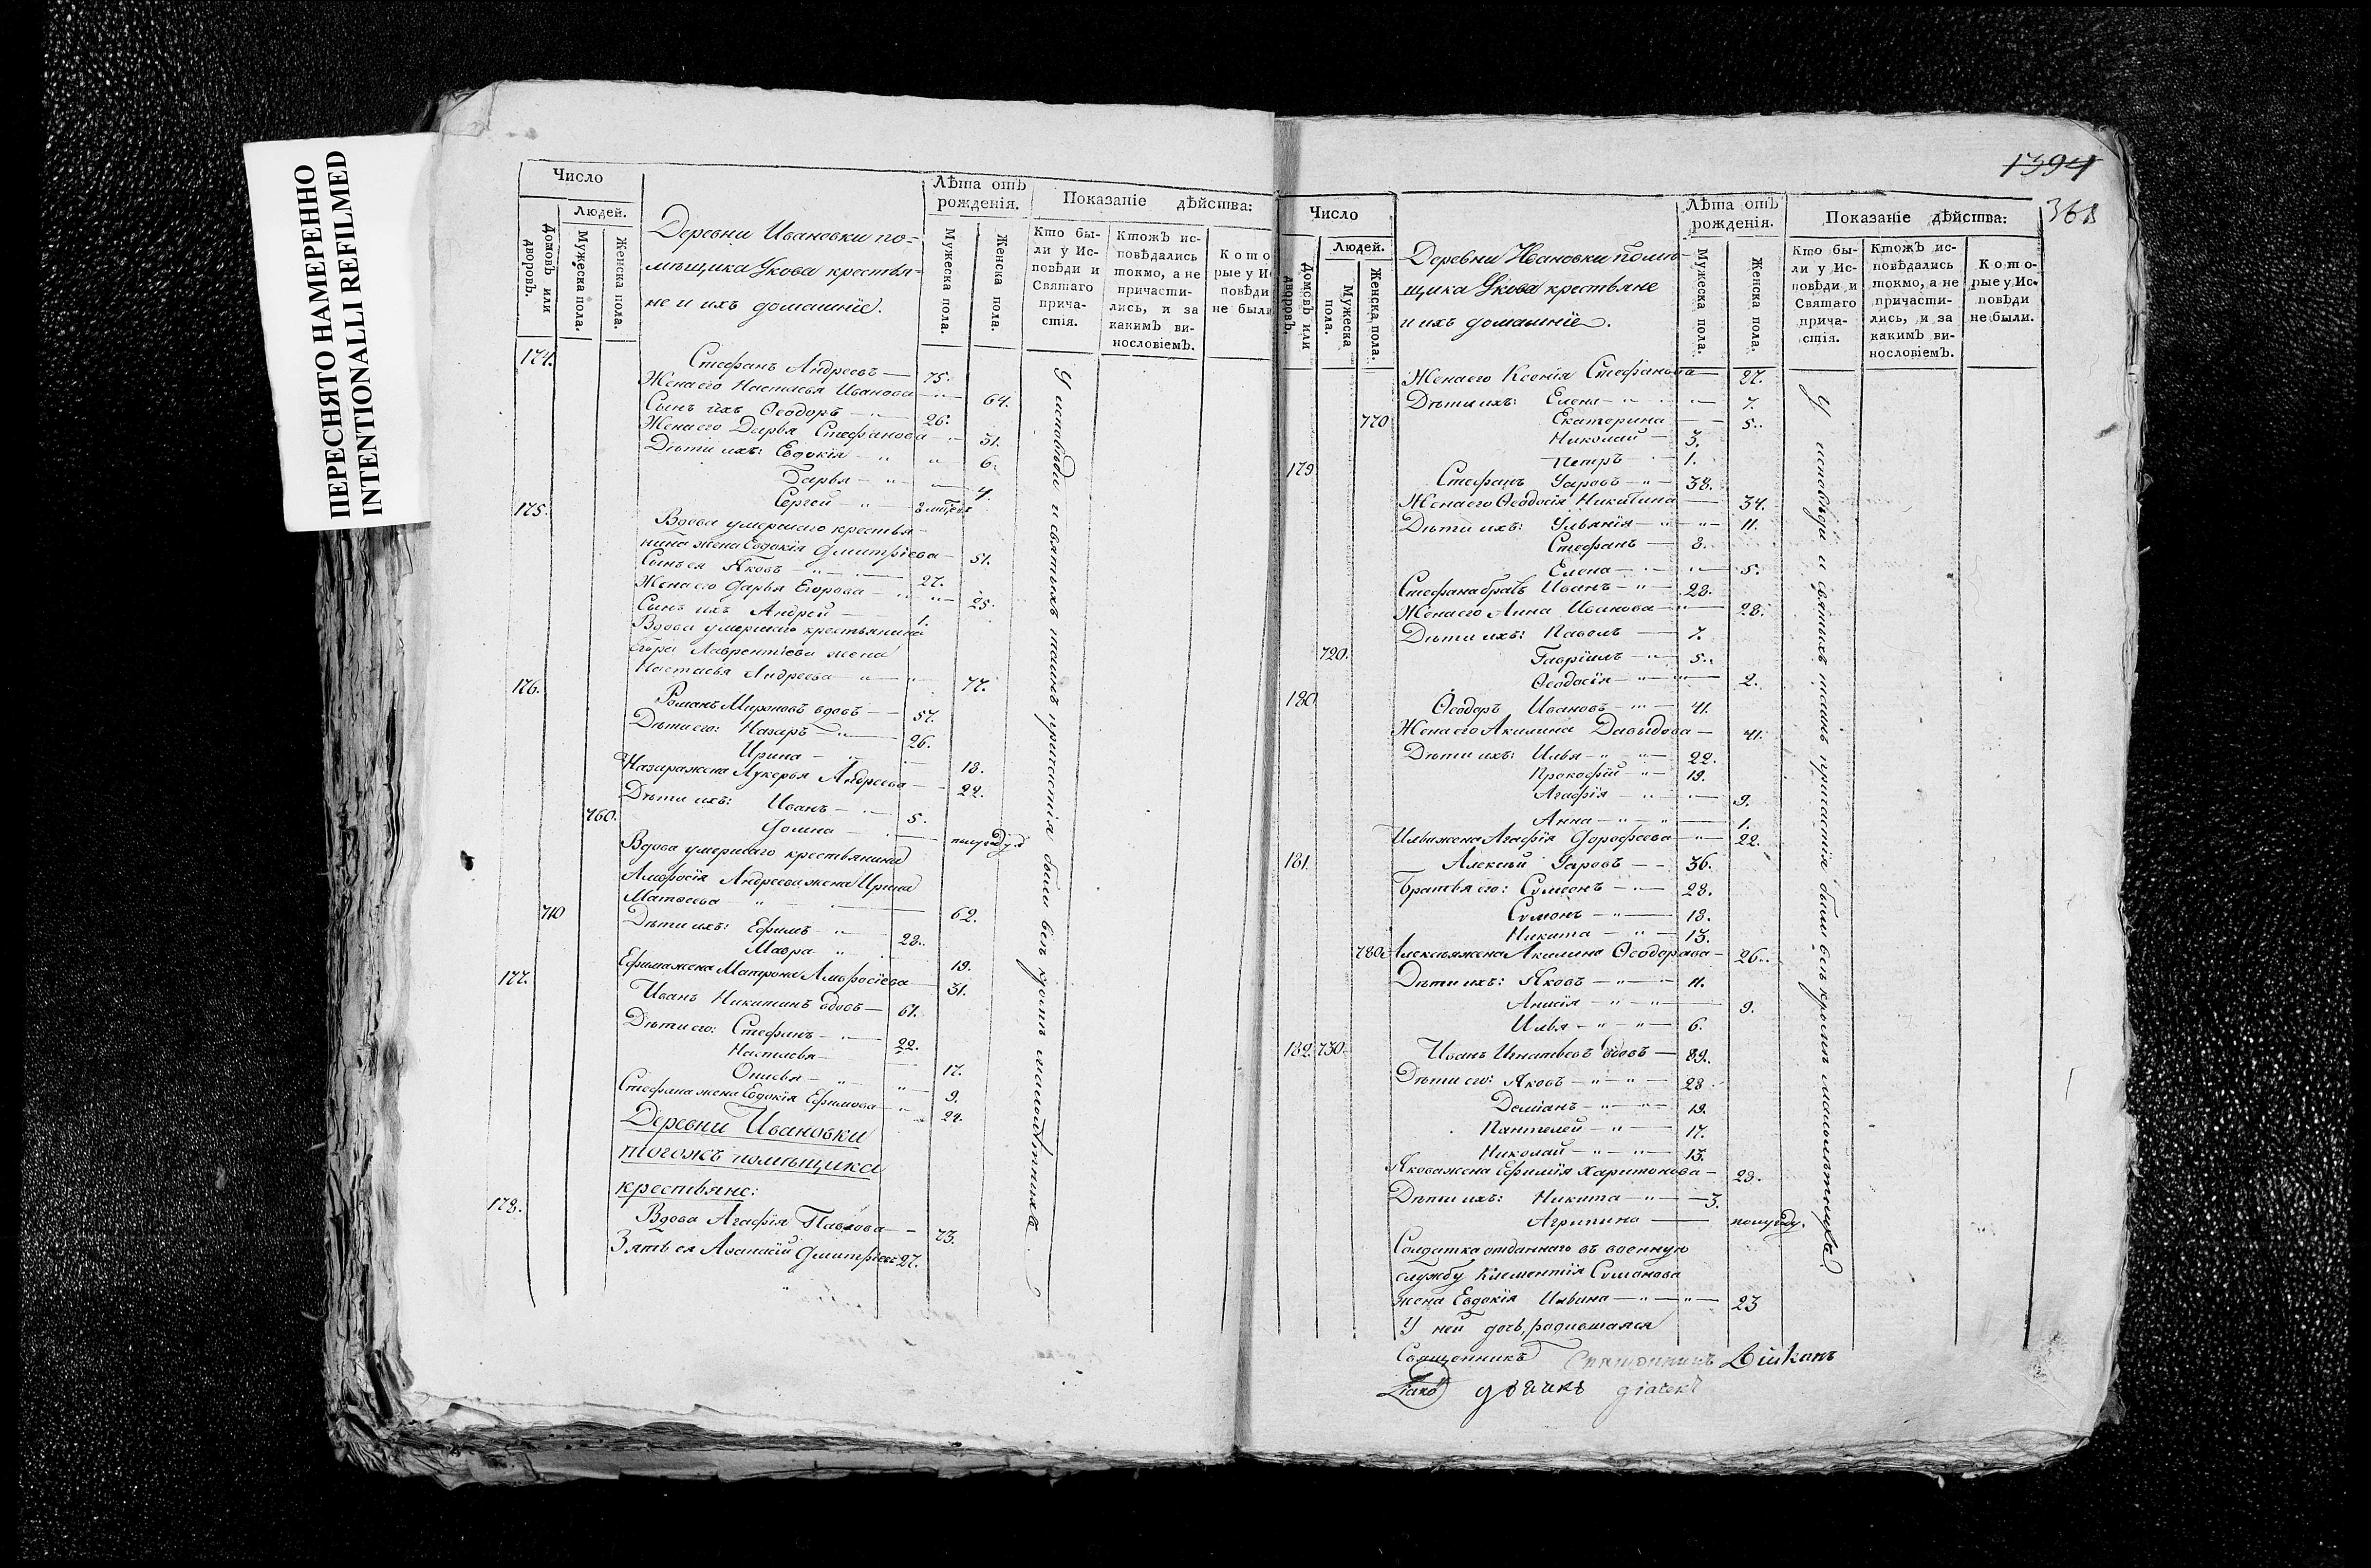 ПЕРЕСНЯТО НАМЕРЕННО
INTENTIONALLI REFILMED
Число
Людей.
Домовъ или дворовъ.
Мужеска пола.
Женска пола.
Деревни Ивановки по-
мѣщика Укова крестья-
не и ихъ домашніе.
Лѣта отъ рожденія.
Мужеска пола.
Женска пола.
Показаніе дѣйства:
Кто бы-
ли у Ис-
повѣди и
Святаго
прича-
стія.
Ктожъ ис-
повѣдались
токмо, а не
причасти-
лись, и за
какимъ ви-
нословіемъ.
Кото
рые у И
повѣди
не были
174. Стефанъ Андреевъ — 75.
Жена его Настасья Иванова — 64.
Сынъ ихъ Ѳеодоръ — 26.
Жена его Дарья Стефанова — 31.
Дѣти ихъ: Евдокія — 6.
Дарья — 4.
Сергей —
175. Вдова умершаго крестья-
нина жена Евдокія Дмитріева — 51.
Сынъ ея Яковъ — 27.
Жена его Дарья Егорова — 25.
Сынъ ихъ Андрей — 1.
Вдова умершаго крестьянина
Егора Лаврентіева жена
Настасья Андреева — 77.
176. Романъ Мироновъ вдовъ — 57.
Дѣти его: Назаръ — 26.
Ирина — 18.
Назара жена Лукерья Андреева — 22.
Дѣти ихъ: Иванъ — 5.
760. Домна — полугоду
Вдова умершаго крестьянина
Амвросія Андреева жена Ирина
Матѳеева — 62.
710 Дѣти ихъ: Ефимъ — 28.
Мавра — 19.
Ефима жена Матрона Амвросіева — 31.
177. Иванъ Никитинъ вдовъ — 61.
Дѣти его: Стефанъ — 22.
Настасья — 17.
— 9.
Стефана жена Евдокія Ефимова — 24.
Деревни Ивановки
тогожъ помѣщика
крестьяне:
178. Вдова Агафія Павлова — 73.
Зять ея Аѳанасій Дмитріевъ 27.
У исповѣди и святыхъ таинъ причастія были всѣ кромѣ малолѣтнихъ.
1394
368
Число
Людей.
Домовъ или дворовъ.
Мужеска пола.
Женска пола.
Деревни Ивановки помѣ-
щика Укова крестьяне
и ихъ домашніе.
Лѣта отъ рожденія.
Мужеска пола.
Женска пола.
Показаніе дѣйства:
Кто бы-
ли у Ис-
повѣди и
Святаго
прича-
стія.
Ктожъ ис-
повѣдались
токмо, а не
причасти-
лись, и за
какимъ ви-
нословіемъ.
Кото-
рые у Ис-
повѣди
не были.
Жена его Ксенія Стефанова — 27.
Дѣти ихъ: Елена — 7.
770 Екатерина — 5.
Николай — 3.
Петръ — 1.
179. Стефанъ Уаровъ — 38.
Жена его Ѳеодосія Никитина — 34.
Дѣти ихъ: Ульянія — 11.
Стефанъ — 8.
Елена — 5.
Стефана братъ Иванъ — 28.
Жена его Анна Иванова — 28.
Дѣти ихъ: Павелъ — 7.
720. Гавріилъ — 5.
Ѳеодосія — 2.
180 Ѳеодоръ Ивановъ — 41.
Жена его Акилина Давыдова — 41.
Дѣти ихъ: Илья — 22.
Прокофій — 19.
Агафія — 9.
Анна — 1.
Ильи жена Агафія Дорофеева — 22.
181. Алексѣй Уаровъ — 36.
Братья его: Сумеонъ — 28.
Сумонъ — 18.
Никита — 13.
780 Алексѣя жена Акилина Ѳеодорова — 26.
Дѣти ихъ: Яковъ — 11.
Анисія — 9.
Илья — 6.
182. 730. Иванъ Игнатьевъ вдовъ — 89.
Дѣти его: Яковъ — 28.
Деміанъ — 19.
Пантелей — 17.
Николай — 13.
Якова жена Ефимія Харитонова — 23.
Дѣти ихъ: Никита — 3.
Агрипина — полугоду.
Солдатка отданнаго въ военную
службу Климентія Сумонова
жена Евдокія Ильина — 23
У ней дочь, родившаяся
У исповѣди и святыхъ таинъ причастія были всѣ кромѣ малолѣтнихъ.
Священникъ